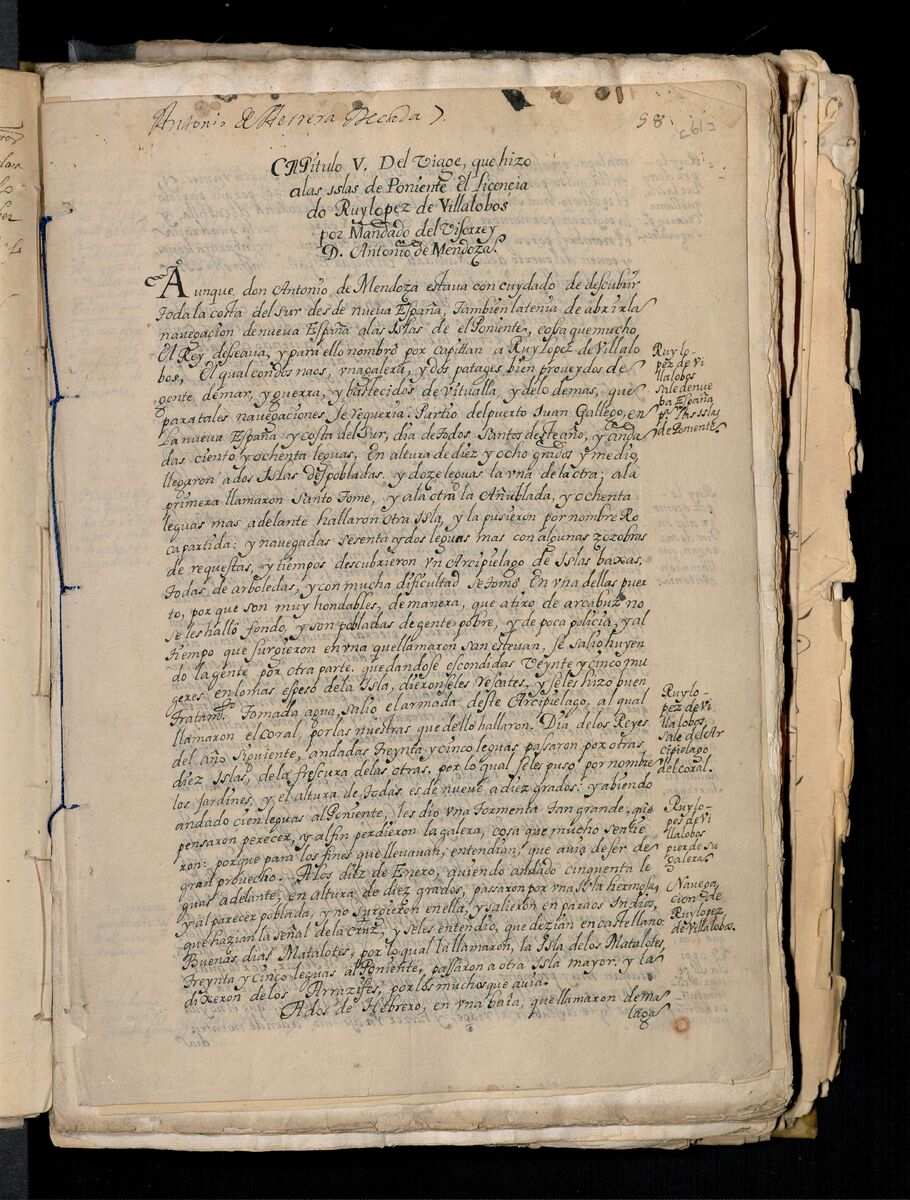 Antonio de Herrera Decada 7.
58
CAPitulo V. Del Viage, que hizo
alas islas de Poniente El Licencia
do Ruylopez de Villalobos
por Mandado del Visorrey
D. Antonio de Mendoza.
Aunque, don Antonio de Mendoza estava con cuydado de descubrir
toda la costa del sur desde nueva España, tambien latenia de abrir la
navegacion de nueva España alas Islas de el Poniente, cosa que mucho
El Rey deseava, y para ello nombrò por capittan a Ruylopez de Villalo
bos, El qual con dos naos, una galera, y dos patages bien proveydos de
gente de mar, y guerra, y bastecidos de vitualla, y delo demas, que
para tales navegaciones se requeria: Partio del puerto Iuan Gallego, en
La nueva España y costa del Sur, dia de todos Santos deste año, y anda
das ciento y ochenta leguas, En altura de diez y ocho grados y medio,
llegaron a dos Islas despobladas. y doze leguas la vna de la otra; ala
primera llamaron Santo tome, y ala otra la Añublada, y ochenta
leguas mas adelante hallaron otra Isla, y la pusieron por nombre Ro
ca partida: y navegadas sesenta y dos leguas mas con algunas zozobras
de requestas, y tiempos descubrieron vn Arcipielago de Islas baxas,
todas de arboledas, y con mucha dificultad se tomò En vna dellas puer
to, por que son muy hondables, de manera, que a tiro de arcabuz no
se les hallò fondo, y son pobladas de gente pobre, y de poca policia, y al
tiempo que surgieron en vna que llamaron san estevan, se salio huyen
do la gente por otra parte. quedandose escondidas Veynte y cinco mu
geres en lo mas espeso dela Isla, dieronseles rescates, y seles hizo buen
tratamto. Tomada agua, salio el armada deste Arcipielago, al qual
llamaron el Coral, por las muestras que dello hallaron. Dia delos Reyes
del año siguiente, andadas treynta y cinco leguas, pasaron por otras
diez Islas, de la frescura delas otras. por lo qual seles puso por nombre
los Jardines, y el altura de todas es de nueve a diez grados: y abiendo
andado cien leguas al Poniente, les dio vna Tormenta tan grande, que
pensaron perecer, y al fin perdieron la galera, cosa que mucho sentie
ron: porque para los fines que llevavan, entendian, que avia de ser de
gran provecho. Alos diez de Enero, aviendo andado cinquenta le
guas adelante, en altura de diez grados, pasaron por vna Isla hermosa,
y al parecer poblada, y no surgieron en ella, y salieron en paraos Indios,
que hazian la señal de la cruz, y seles entendio, que dezian en castellano:
Buenos dias Matalotes; por lo qual la llamaron, la Isla delos Matalotes,
treynta y cinco leguas al Poniente, passaron a otra Isla mayor. y la
dixeron de los Arrazifes, por los muchos que auia.
Ados de Hebrero, en vna baìa, que llamaron de ma
laga
Ruylo
pez de Vi
llalobos
sale de nue
ba España
pa las islas
de Poniente.
Ruylo-
pez de Vi
llalobos,
sale del Ar
cipielago
del coral.
Ruylo-
pes de Vi
llalobos
pierde su
galera.
Navega-
cion de
Ruylopez
de Villalobos.